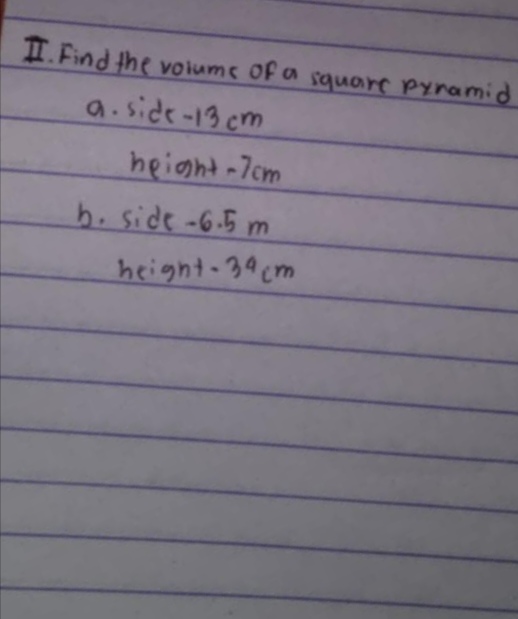 II. Find the volume of a square pyramid
a. side - 13 cm
height - 7cm
b. side - 6.5 m
height - 39 cm